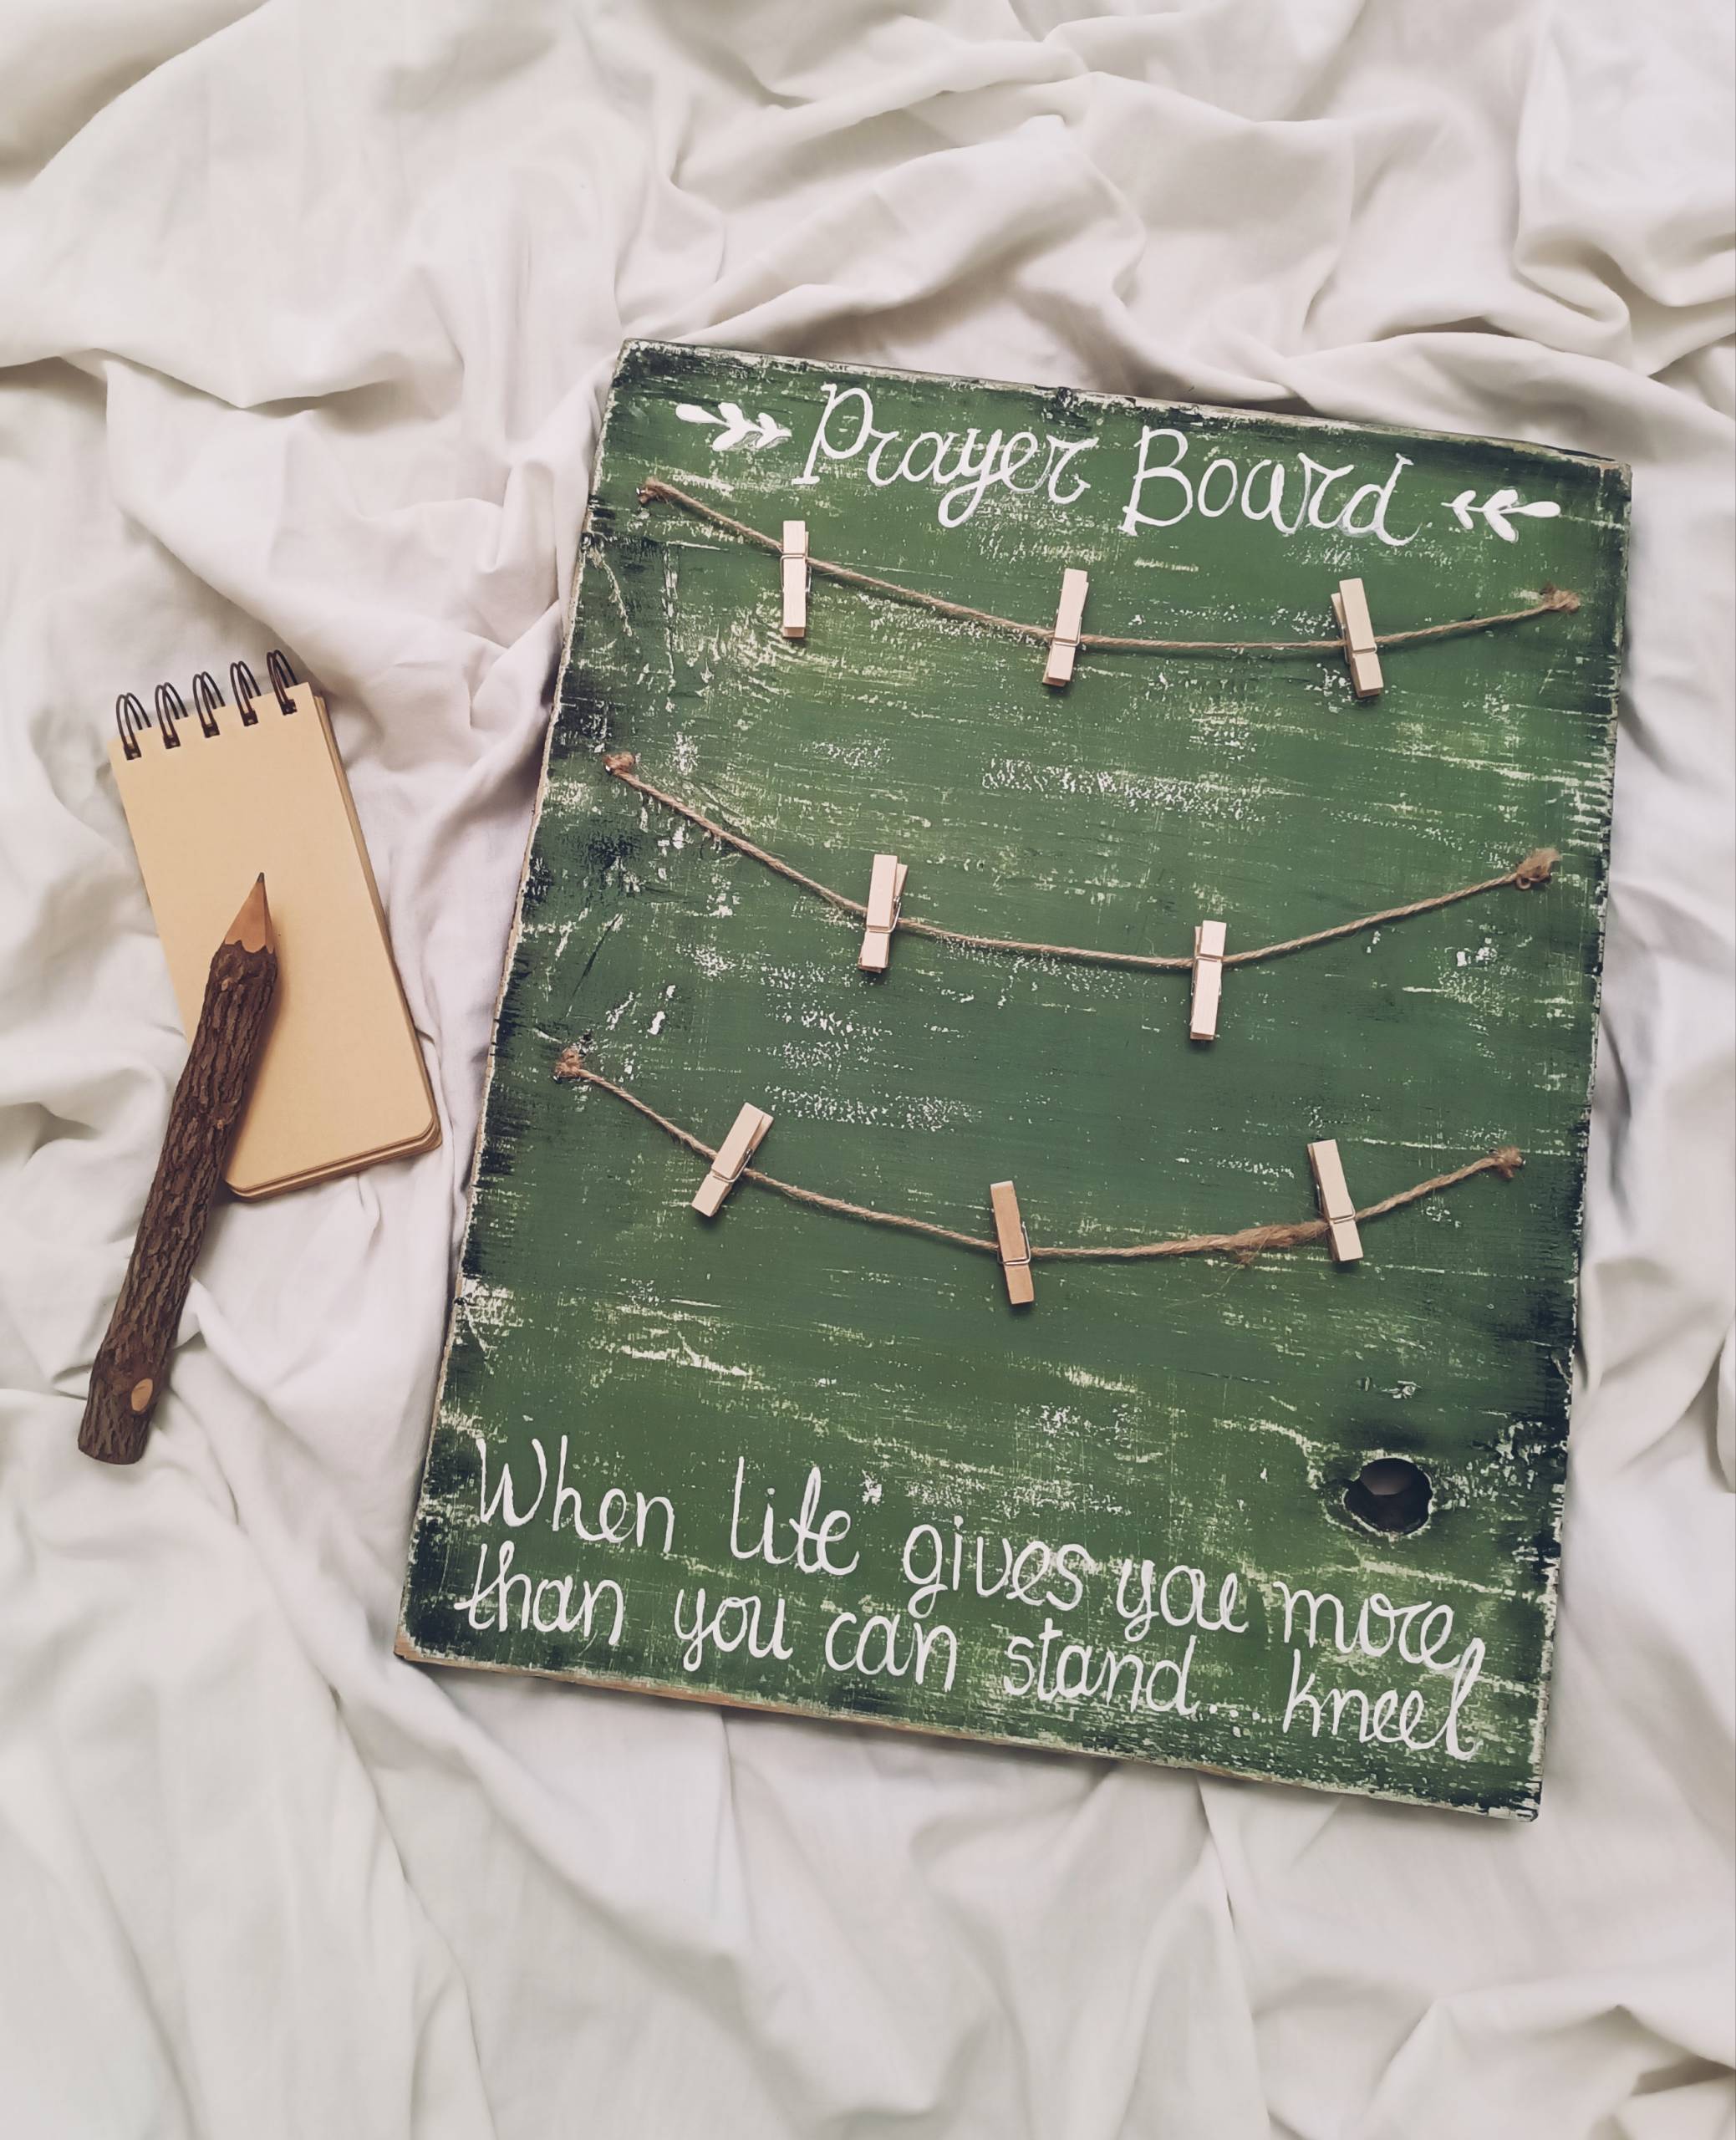 Prayer Board
When life gives you more,
than you can stand... kneel